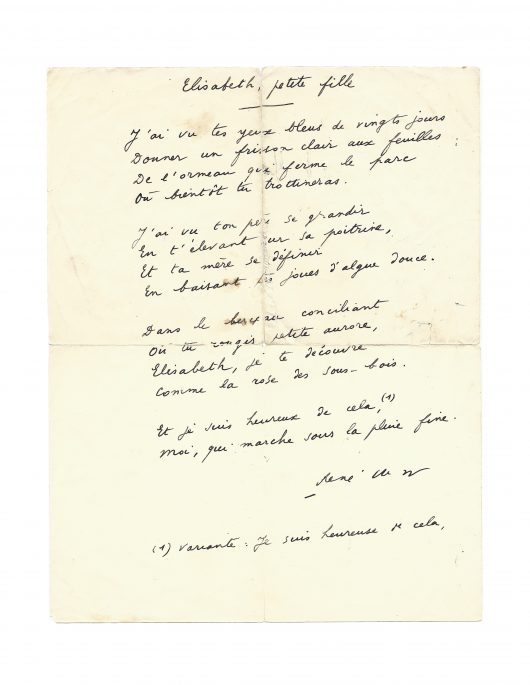 Elisabeth, petite fille
J'ai vu tes yeux bleus de vingts jours
Donner un frisson clair aux feuilles
De l'ormeau qui ferme le parc
Où bientôt tu trottineras.
J'ai vu ton père se grandir
En t'élevant sur sa poitrine,
Et ta mère se définir
En baisant tes joues d'algue douce.
Dans le berceau conciliant
Où tu rougis petite aurore,
Elisabeth, je te découvre
Comme la rose des sous-bois.
Et je suis heureux de cela,(1)
Moi, qui marche sous la pluie fine.
René
(1) Variante : Je suis heureuse de cela,